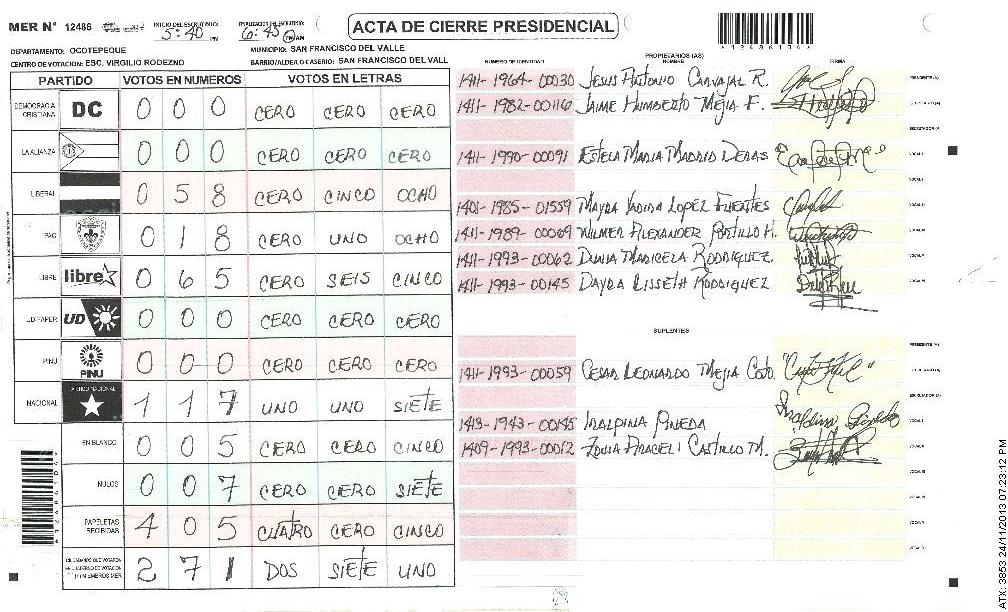 MER N° 12486 INICIO DEL ESCRUTINIO: 5:40 PM 6:45 PM AM
ACTA DE CIERRE PRESIDENCIAL
12486101
DEPARTAMENTO: OCOTEPEQUE MUNICIPIO: SAN FRANCISCO DEL VALLE
CENTRO DE VOTACION: ESC. VIRGILIO RODEZNO BARRIO/ALDEA O CASERIO: SAN FRANCISCO DEL VALL
PARTIDO VOTOS EN NUMEROS VOTOS EN LETRAS
DEMOCRACIA CRISTIANA DC 0 0 0 CERO CERO CERO
LA ALIANZA 0 0 0 CERO CERO CERO
LIBERAL 0 5 8 CERO CINCO OCHO
PAC 0 1 8 CERO UNO OCHO
LIBRE libre 0 6 5 CERO SEIS CINCO
UD/FAPER UD 0 0 0 CERO CERO CERO
PINU PINU 0 0 0 CERO CERO CERO
NACIONAL 1 1 7 UNO UNO SIETE
EN BLANCO 0 0 5 CERO CERO CINCO
NULOS 0 0 7 CERO CERO SIETE
PAPELETAS RECIBIDAS 4 0 5 CUATRO CERO CINCO
CIUDADANOS QUE VOTARON
EN CUADERNO DE VOTACION
2 7 1 DOS SIETE UNO
PROPIETARIOS (AS)
NUMERO DE IDENTIDAD NOMBRE FIRMA
1411-1964-00030 JESUS ANTONIO CARVAJAL R. PRESIDENTE(A)
1411-1982-00116 JAIME HUMBERTO MEJIA F. SECRETARIO(A)
ESCRUTADOR(A)
1411-1990-00091 ESTELA MARIA MADRID DERAS VOCAL I
VOCAL II
1401-1985-01559 MAYRA YADIRA LOPEZ FUENTES VOCAL III
1411-1989-00069 WILMER ALEXANDER PORTILLO H. VOCAL IV
1411-1993-00062 DUNIA MARICELA RODRIGUEZ VOCAL V
1411-1993-00145 DAYRA LISSETH RODRIGUEZ VOCAL VI
SUPLENTES
PRESIDENTE(A)
1411-1993-00059 CESAR LEONARDO MEJIA SECRETARIO(A)
ESCRUTADOR(A)
1413-1943-00145 PINEDA VOCAL I
1409-1993-00012 ARACELI CASTILLO M. VOCAL II
VOCAL III
VOCAL IV
VOCAL V
VOCAL VI
ATX: 3853 24/11/2013 07:23:12 PM